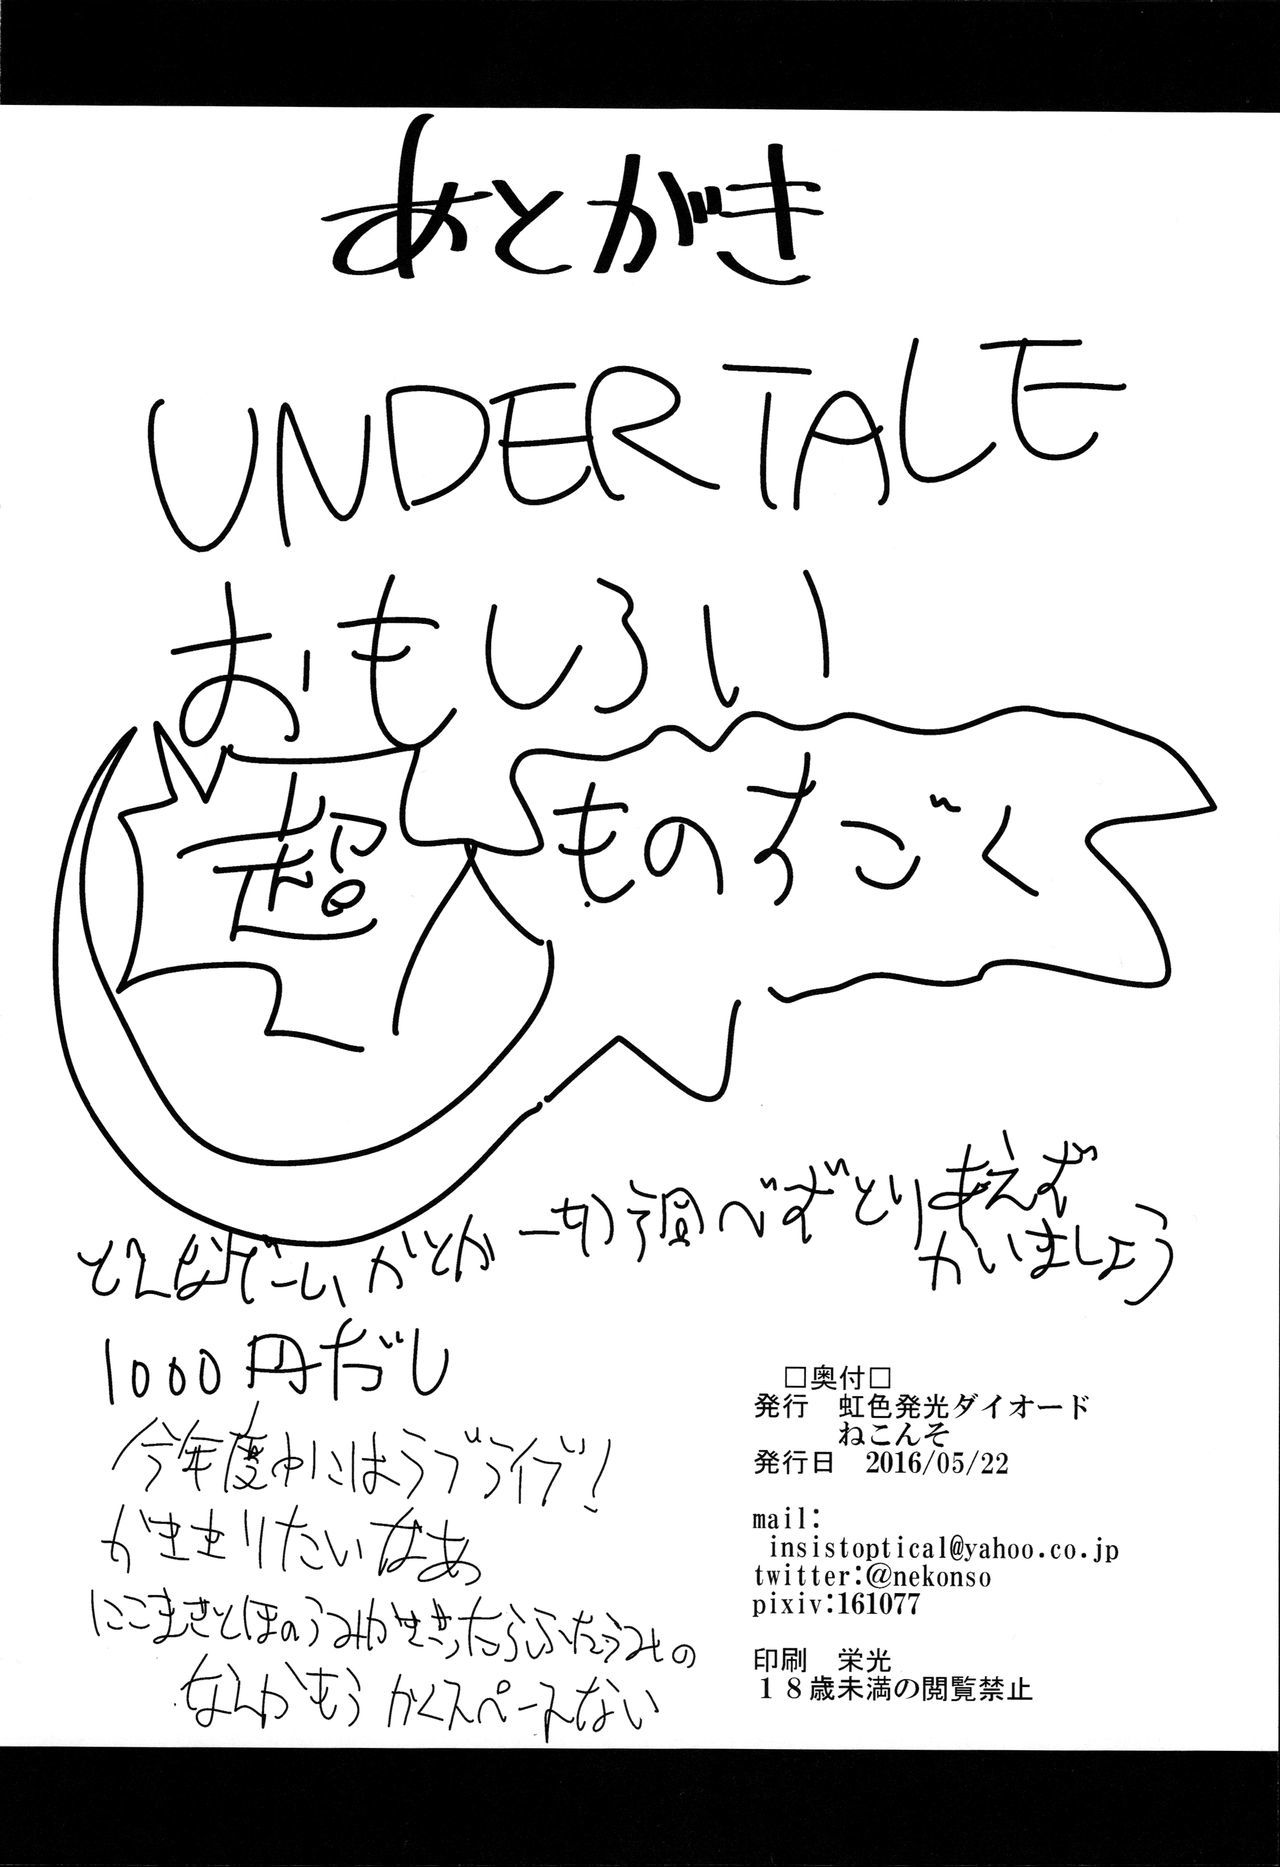 あとがき
UNDERTALE
おもしろい
超 ものすごく
どんなゲームかとか一切調べずとりあえず
かいましょう
1000円だし
今年度中にはラブライブ!
がききりたいなあ
にこまきとほのうみがききったらふたうみの
なんかもうかくスペースない
□奥付□
発行 虹色発光ダイオード
ねこんそ
発行日 2016/05/22
mail:
insistoptical@yahoo.co.jp
twitter:@nekonso
pixiv:161077
印刷 栄光
18歳未満の閲覧禁止